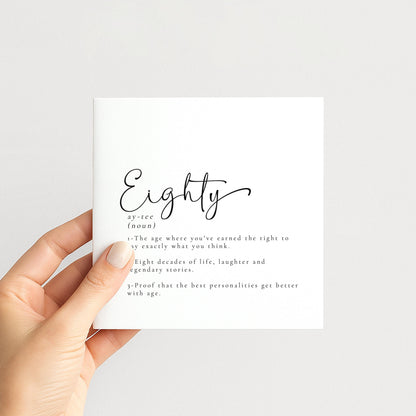 Eighty
ay-tee
(noun)
1-The age where you've earned the right to
say exactly what you think.
Eight decades of life, laughter and
legendary stories.
3-Proof that the best personalities get better
with age.